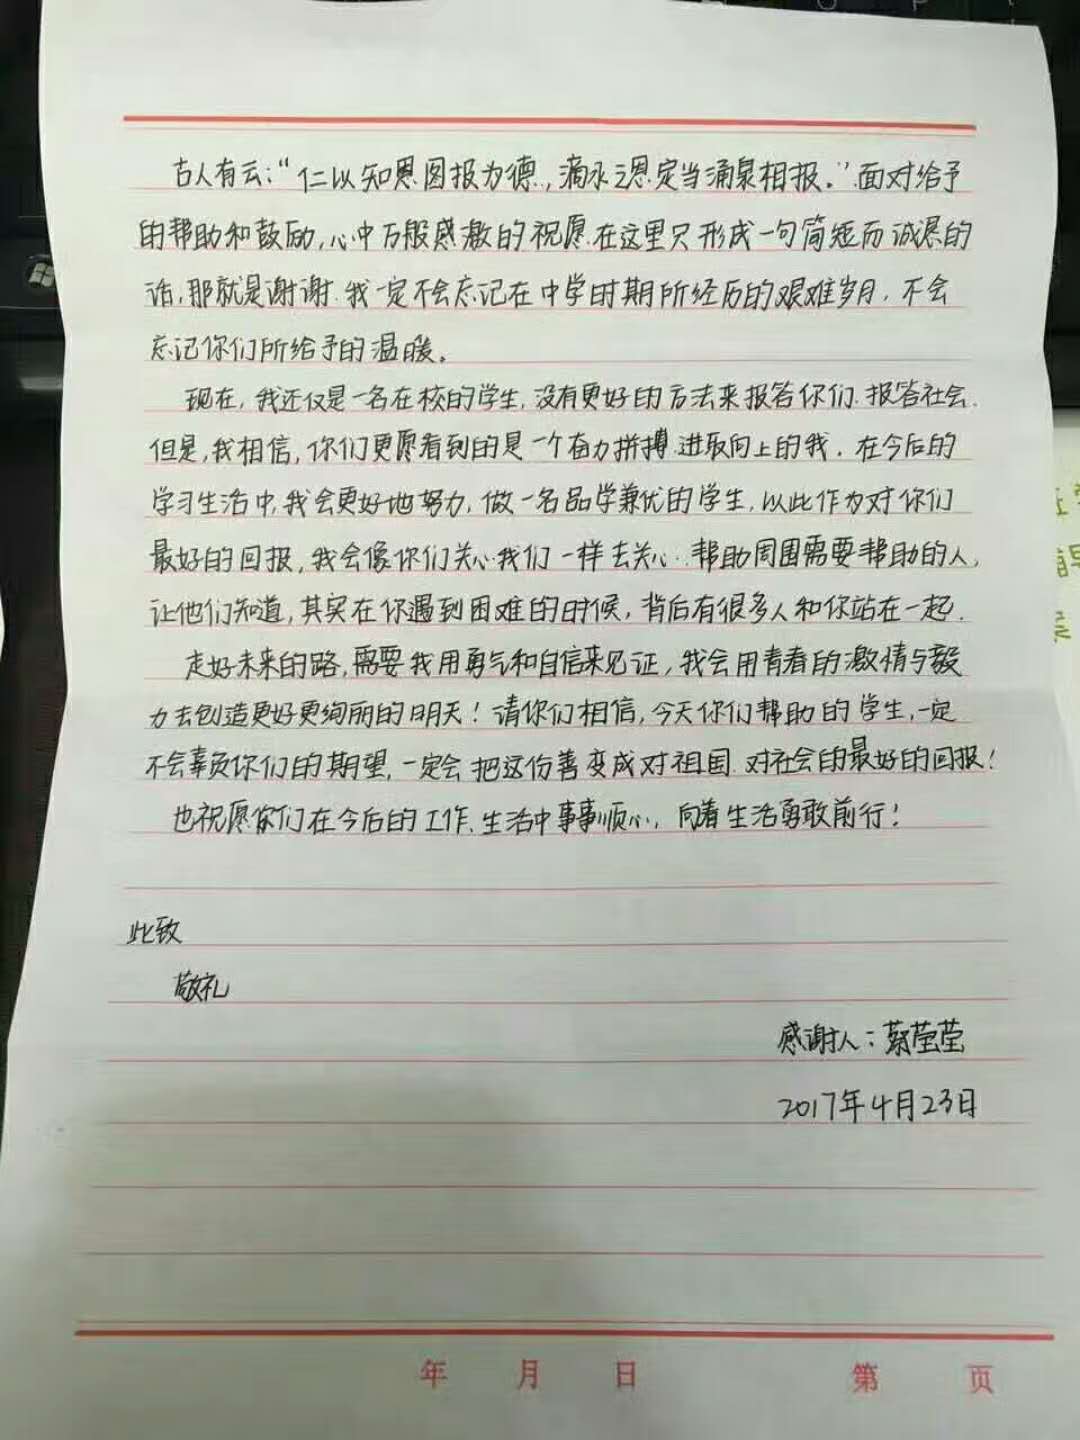 古人有云:“仁以知恩图报为德,滴水之恩定当涌泉相报。”面对给予
的帮助和鼓励,心中万般感激的祝愿在这里只形成一句简短而诚恳的
话,那就是谢谢.我一定不会忘记在中学时期所经历的艰难岁月,不会
忘记你们所给予的温暖。
现在,我还仅是一名在校的学生,没有更好的方法来报答你们.报答社会.
但是,我相信,你们更愿看到的是一个奋力拼搏.进取向上的我.在今后的
学习生活中,我会更好地努力,做一名品学兼优的学生,以此作为对你们
最好的回报,我会像你们关心我们一样去关心.帮助周围需要帮助的人,
让他们知道,其实在你遇到困难的时候,背后有很多人和你站在一起.
走好未来的路,需要我用勇气和自信来见证,我会用青春的激情与毅
力去创造更好更绚丽的明天!请你们相信,今天你们帮助的学生,一定
不会辜负你们的期望,一定会把这份善变成对祖国.对社会的最好的回报!
也祝愿你们在今后的工作.生活中事事顺心,向着生活勇敢前行!
此致
敬礼
感谢人:蔡莹莹
2017年4月23日
年 月 日 第 页